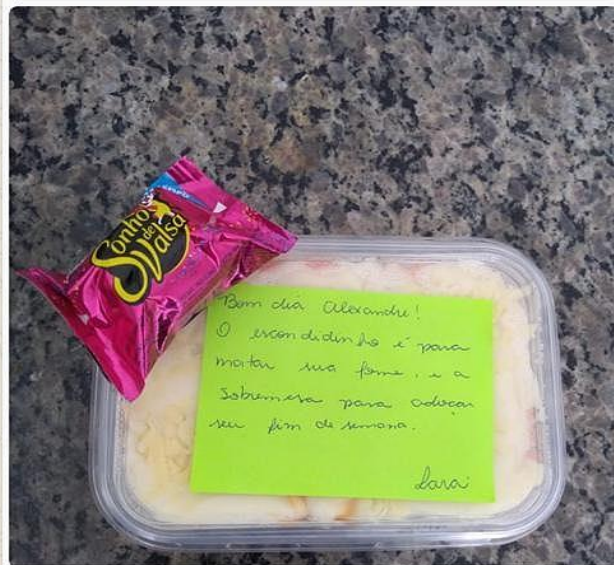 Sonho
de
Valsa
Bom dia Alexandre!
O escondidinho é para
matar sua fome, e a
sobremesa para adoçar
seu fim de semana.